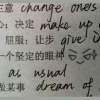 意 change one's
心；决定 make up
服；让步 give i
一个坚定的眼神
as usual
某事 dream of